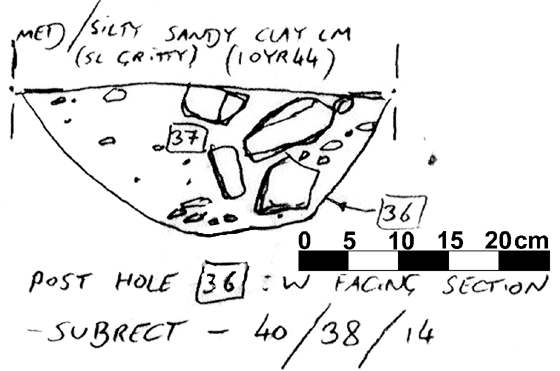 MED/SILTY SANDY CLAY LM
(SL GRITTY) (10YR44)
37
36
0 5 10 15 20cm
POST HOLE 36 : W FACING SECTION
- SUBRECT - 40/38/14